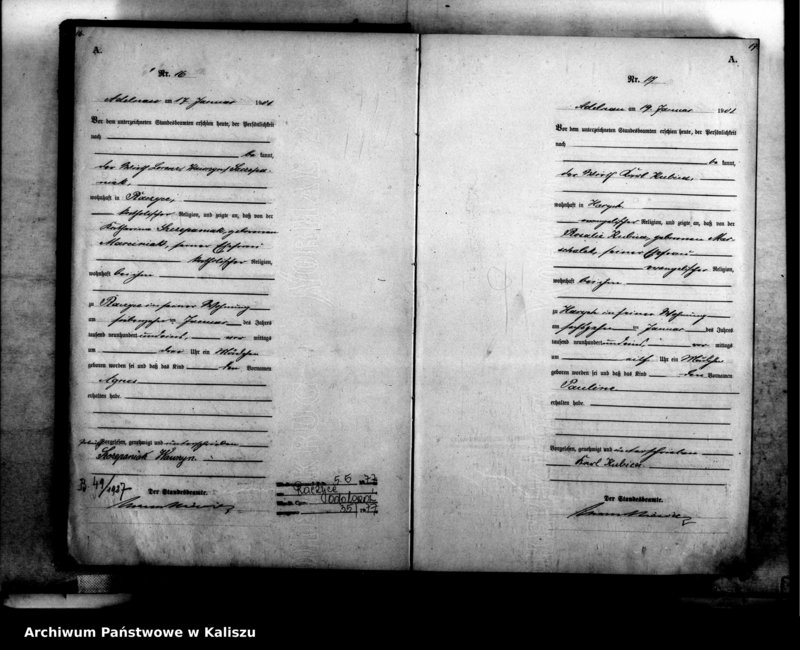 A.
Nr. 16
Adelnau am 17. Januar 1901
Vor dem unterzeichneten Standesbeamten erschien heute, der Persönlichkeit
nach
be kannt,
der Wirth Lorenz Wawrzyn Szczepa-
niak,
wohnhaft in
katholischer Religion, und zeigte an, daß von der
Katharina Szczepaniak, geborenen
Marciniak, seiner Ehefrau
katholischer Religion,
wohnhaft bei ihm
zu in seiner Wohnung
am Januar des Jahres
tausend neunhundert und eins, vor mittags
um drei Uhr ein Mädchen
geboren worden sei und daß das Kind den Vornamen
Agnes
erhalten habe.
Vorgelesen, genehmigt und unterschrieben
Szczepaniak Wawrzyn
B 49/1937
Der Standesbeamte.
5 5 77
Raczyce
35/77
17
A.
Nr. 17
Adelnau am 19. Januar 1901
Vor dem unterzeichneten Standesbeamten erschien heute, der Persönlichkeit
nach
be kannt,
der Wirth Karl Kubica,
wohnhaft in
evangelischer Religion, und zeigte an, daß von der
Rosalie Kubica, geborenen Mar-
schalek, seiner Ehefrau
evangelischer Religion,
wohnhaft bei ihm
zu in seiner Wohnung
am Januar des Jahres
tausend neunhundert und eins, vor mittags
um elf Uhr ein Mädchen
geboren worden sei und daß das Kind den Vornamen
Pauline
erhalten habe.
Vorgelesen, genehmigt und unterschrieben
Karl Kubica
Der Standesbeamte.
Archiwum Państwowe w Kaliszu